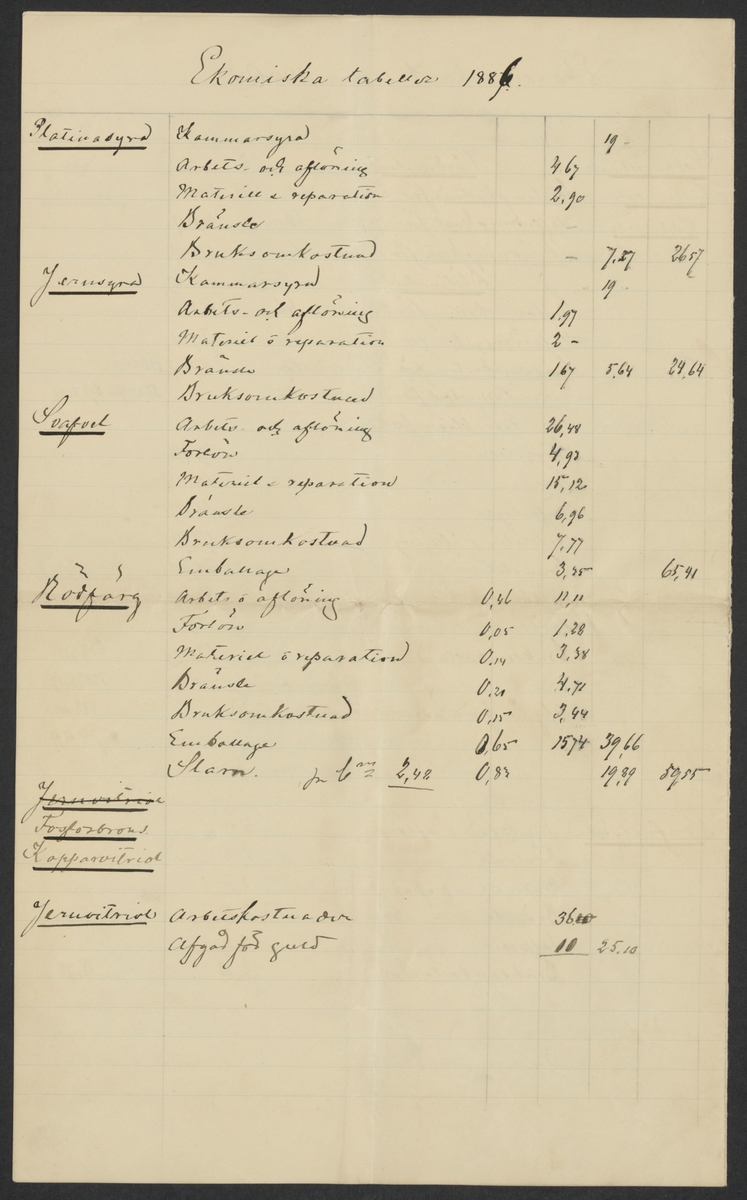 Ekomiska tabeller 1886.
Platinasyra Kammarsyra 19 -
Arbets- och aflöning 4 67
Materiell & reparation 2,90
Bränsle -
Bruksomkostnad - 7.57 26 57
Jernsyra Kammarsyra 19 -
Arbets- och aflöning 1.97
Materiel o reparation 2 -
Bränsle 1 67 5,64 24,64
Bruksomkostnad
Svafvel Arbets- och aflöning 26,48
Förlön 4,93
Materiel & reparation 15,12
Bränsle 6,96
Bruksomkostnad 7.77
Emballage 3,35 65,41
Rödfärg Arbets o aflöning 0,46 11,11
Förlön 0,05 1.28
Materiel o reparation 0.14 3,38
Bränsle 0.21 4.71
Bruksomkostnad 0,15 3,44
Emballage 0,65 15 74 39,66
Slam. pr 6 m 2,42 0,83 19,89 59,55
Jernvitriol
Fosforbrons
Kopparvitriol
Jernvitriol Arbetskostnader 36
Afgår för guld 10 25.10